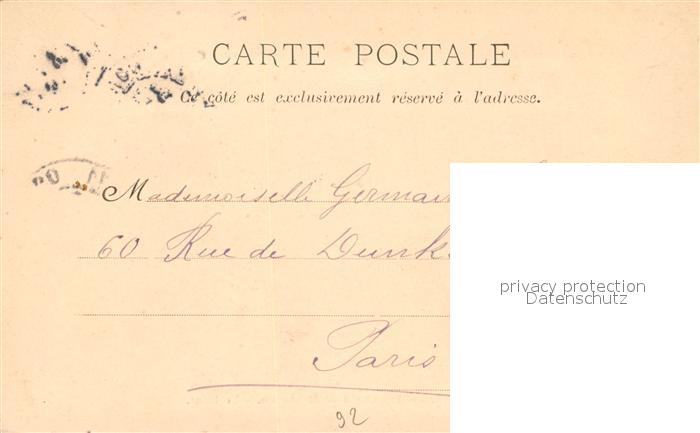 CARTE POSTALE
Ce côté est exclusivement réservé à l'adresse.
Mademoiselle Germain
60 Rue de Dunk
privacy protection
Datenschutz
Paris
92